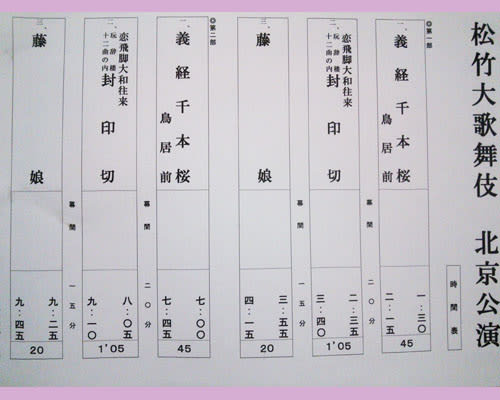 松竹大歌舞伎 北京公演
時間表
◎第一部
一、義経千本桜
鳥居前
一:三〇
二:一五
45
幕間 二〇分
二、恋飛脚大和往来
玩辞楼十二曲の内
封印切
二:三五
三:四〇
1'05
幕間 一五分
三、藤娘
三:五五
四:一五
20
◎第二部
一、義経千本桜
鳥居前
七:〇〇
七:四五
45
幕間 二〇分
二、恋飛脚大和往来
玩辞楼十二曲の内
封印切
八:〇五
九:一〇
1'05
幕間 一五分
三、藤娘
九:二五
九:四五
20